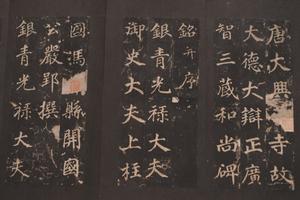 唐大興寺故
大德大辯正廣
智三藏和尚碑
銘并序
銀青光祿大夫
御史大夫上柱
國馮縣開國
公嚴郢撰
銀青光祿大夫